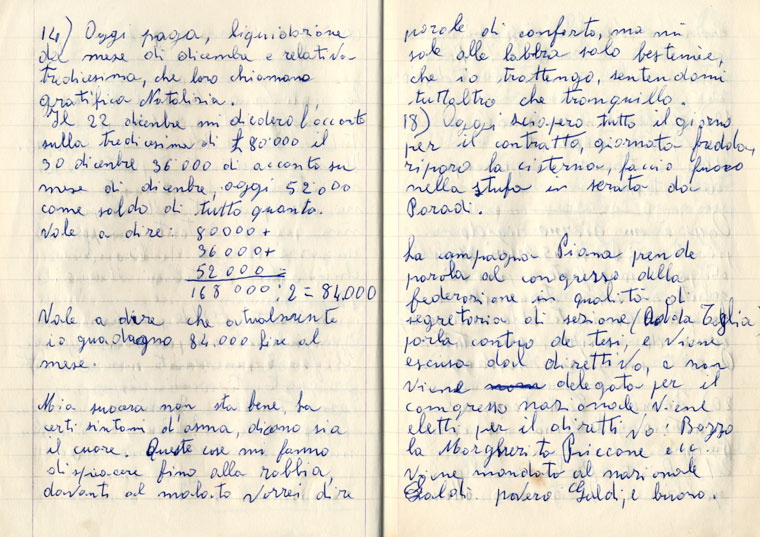 14) Oggi paga, liquidazione
da mese di dicembre e relativa
tredicesima, che loro chiamano
gratifica Natalizia.
Il 22 dicenbre mi diedero l'acconto
sulla tredicesima di £ 80'000 il
30 dicenbre 36'000 di acconto su
mese di dicenbre, oggi 52'000
come saldo di tutto quanto.
Vale a dire: 80000 +
36000 +
52000 =
168 000 : 2 = 84.000
Vale a dire che attualmente
io guadagno 84.000 lire al
mese.
Mia suocera non sta bene, ha
certi sintomi d'asma, dicono sia
il cuore. Queste cose mi fanno
dispiacere fino alla rabbia,
davanti al malato vorrei dire
parole di conforto, ma mi
sale alle labbra solo bestemie,
che io trattengo, sentendomi
tutt'altro che tranquillo.
18) Oggi sciopero tutto il giorno
per il contratto, giornata fredda,
riparo la cisterna, faccio fuoco
nella stufa in serata da
Parodi.
La compagna Piana prende
parola al congresso della
federazione in qualità di
segretaria di sezione
parla contro le tesi, e viene
escusa dal direttivo, e non
viene delegata per il
congresso nazionale viene
eletti per il direttivo: Bozzo
la Margherita Piccone ecc.
Viene mandato al nazionale
Galdi. povero Galdi, è buono.